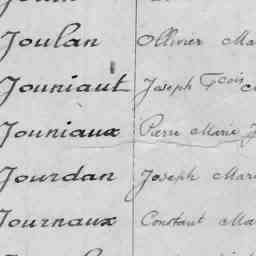 Joulan Ollivier Ma
Jouniaut Joseph Fçois
Jouniaux Pierre Marie J
Jourdan Joseph Mari
Journaux Constant Ma